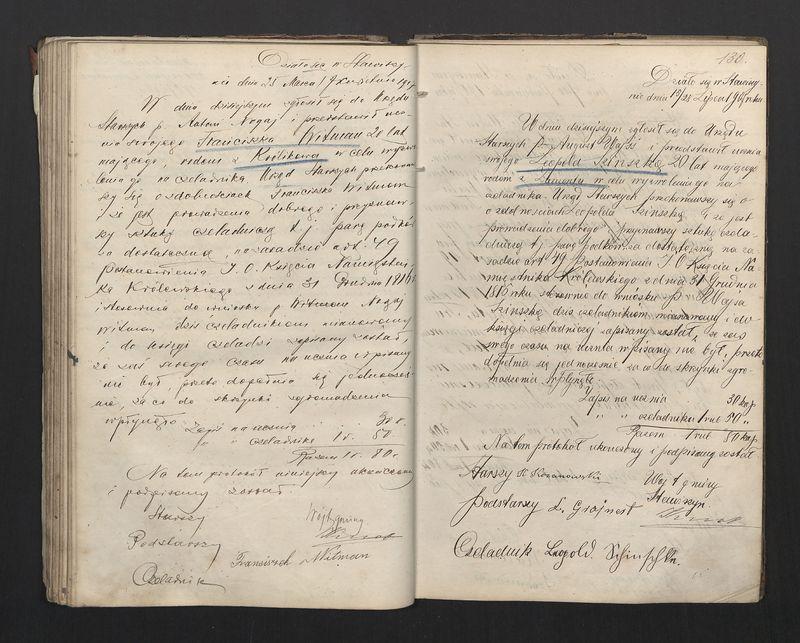 Działo się w Stawiszy-
nie dnia 25 Marca / 7 Kwietnia 1907
W dniu dzisiejszym zgłosił się do Urzędu
Starszych p. Antoni Nogaj i przedstawił ucz-
nia swojego Franciszka Witman 20 lat
mającego, rodem z Królikowa w celu wyzwo-
lenia go na czeladnika. Urząd Starszych przekonaw-
szy się o zdolnościach Franciszka Witmana
i że jest prowadzenia dobrego i przyznaw-
szy sztukę czeladniczą t. j. parę podków
za dostateczną, na zasadzie art. 49
Postanowienia J. O. Księcia Namiestni-
ka Królewskiego z dnia 31 Grudnia 1816 r.
i stosownie do wniosku p. Nogaj
Witman dziś czeladnikiem mianowany
i do księgi czeladzi zapisany został
że zaś swego czasu na ucznia wpisany
nie był, przeto dopełnia się jednocześ-
nie, za co do skrzynki zgromadzenia
wpłynęło
Zapis na ucznia 30 k.
" " czeladnika 1 r. 50.
Razem 1 r. 80 k.
Na tem protokół niniejszy ukończony
i podpisany został.
Starszy
Wójt gminy
Podstarszy
Franciszek Witman
Czeladnik
130.
Działo się w Stawiszy-
nie dnia 15/28 Lipca 1907 roku
W dniu dzisiejszym zgłosił się do Urzędu
Starszych p. August Wajss i przedstawił ucznia
swojego Leopold Szinszke 20 lat mającego
rodem z Zamenty w celu wyzwolenia go na
czeladnika. Urząd Starszych przekonawszy się o
o zdolnościach Leopolda Szinszke i że jest
prowadzenia dobrego i przyznawszy sztukę czela-
dniczą t. j. parę podków za dostateczną na za-
sadzie art. 49 Postanowienia J. O. Księcia Na-
miestnika Królewskiego z dnia 31 Grudnia
1816 roku stosownie do wniosku p. Wajsa
Szinszke dziś czeladnikiem mianowany i do
księgi czeladniczej zapisany został, że zaś
swego czasu na ucznia wpisany nie był, przeto
dopełnia się jednocześnie za co do skrzynki zgro-
madzenia wpłynęło
Zapis na ucznia 30 kop.
" " czeladnika 1 rub 50 "
Razem 1 rub 80 kop.
Na tem protokół ukończony i podpisany został
Starszy K. Kozanowski
Wójt gminy
Stawiszyn
Podstarszy L. Grajnert
Czeladnik Leopold Schinschke.